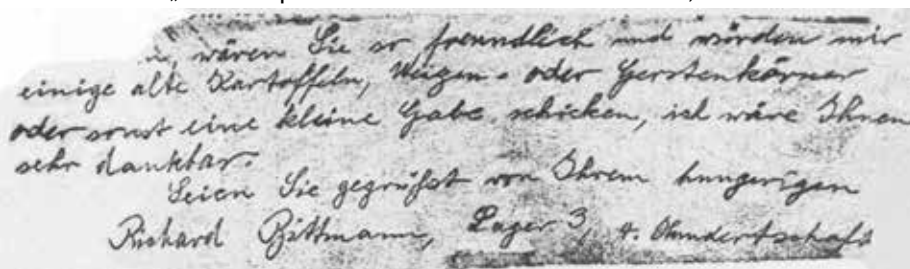 wären Sie so freundlich und würden mir
einige alte Kartoffeln, Weizen- oder Gerstenkörner
oder sonst eine kleine Gabe schicken, ich wäre Ihnen
sehr dankbar.
Seien Sie gegrüßt von Ihrem hungerigen
Richard Lager 3, 4. Hundertschaft